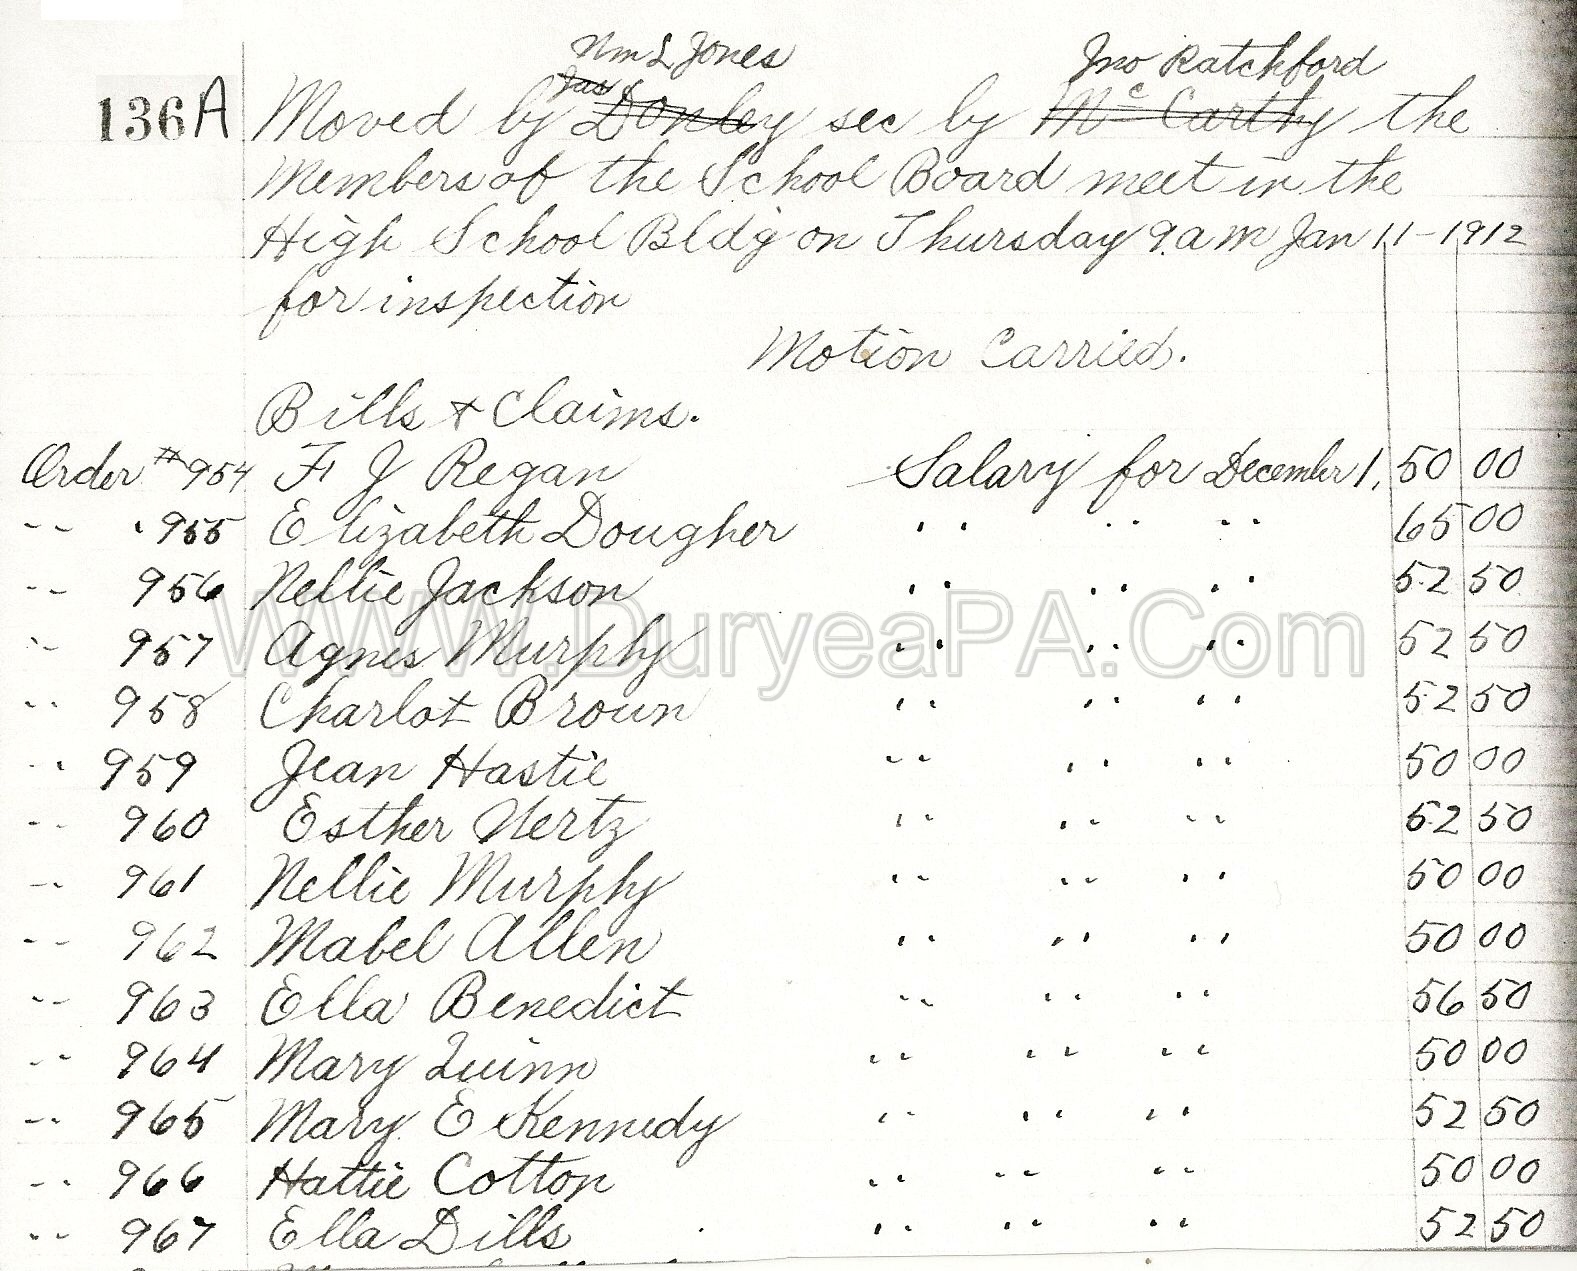 Wm L Jones Jno Ratchford
136A Moved by Jas Donley sec by McCarthy the
Members of the School Board meet in the
High School Bldg on Thursday 9 a m Jan 11-1912
for inspection
Motion Carried.
Bills & Claims.
Order #954 F J Regan Salary for December 1,50 00
" " 955 Elizabeth Dougher " " " 65 00
" 956 Nellie Jackson " " " 52 50
" 957 Agnes Murphy " " " 52 50
WWW.DuryeaPA.Com
" 958 Charlot Broun " " " 52 50
" 959 Jean Hastie " " " 50 00
" 960 Esther Wertz " " " 52 50
" 961 Nellie Murphy " " " 50 00
" 962 Mabel Allen " " " 50 00
" 963 Ella Benedict " " " 56 50
" 964 Mary Quinn " " " 50 00
" 965 Mary E Kennedy " " " 52 50
" 966 Hattie Cotton " " " 50 00
" 967 Ella Dills " " " 52 50